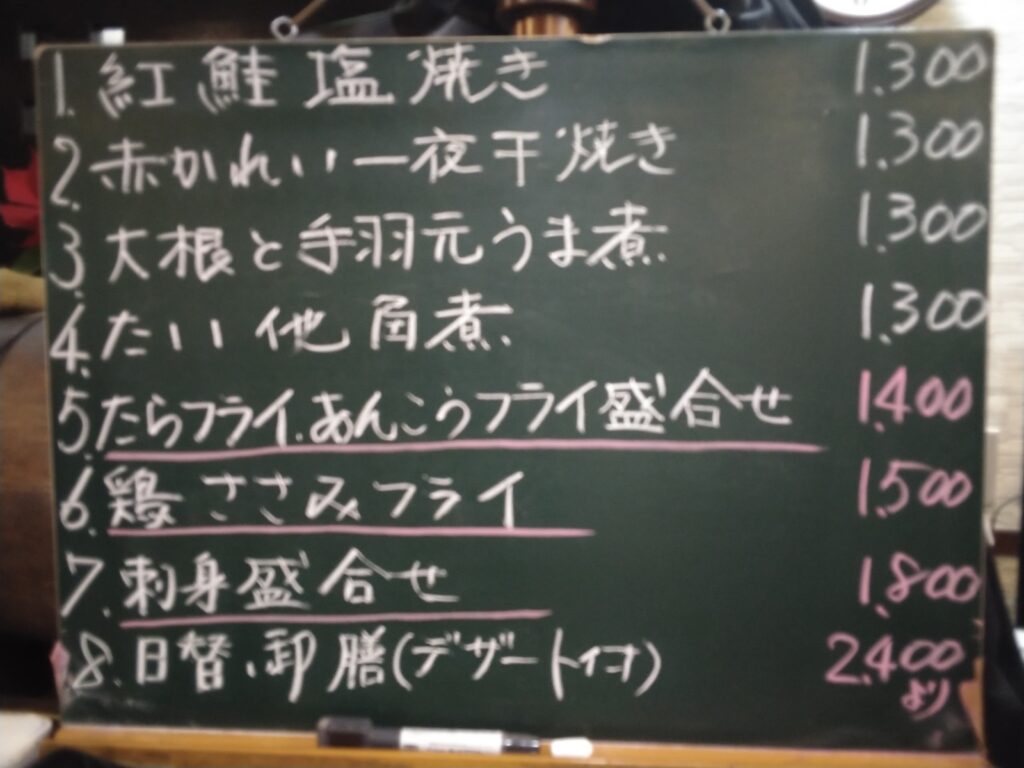 1. 紅鮭塩焼き 1.300
2. 赤かれい一夜干焼き 1.300
3. 大根と手羽元うま煮 1.300
4. たい他角煮 1.300
5. たらフライ.あんこうフライ盛合せ 1.400
6. 鶏ささみフライ 1.500
7. 刺身盛合せ 1.800
8. 日替、御膳(デザート付) 2.400
より